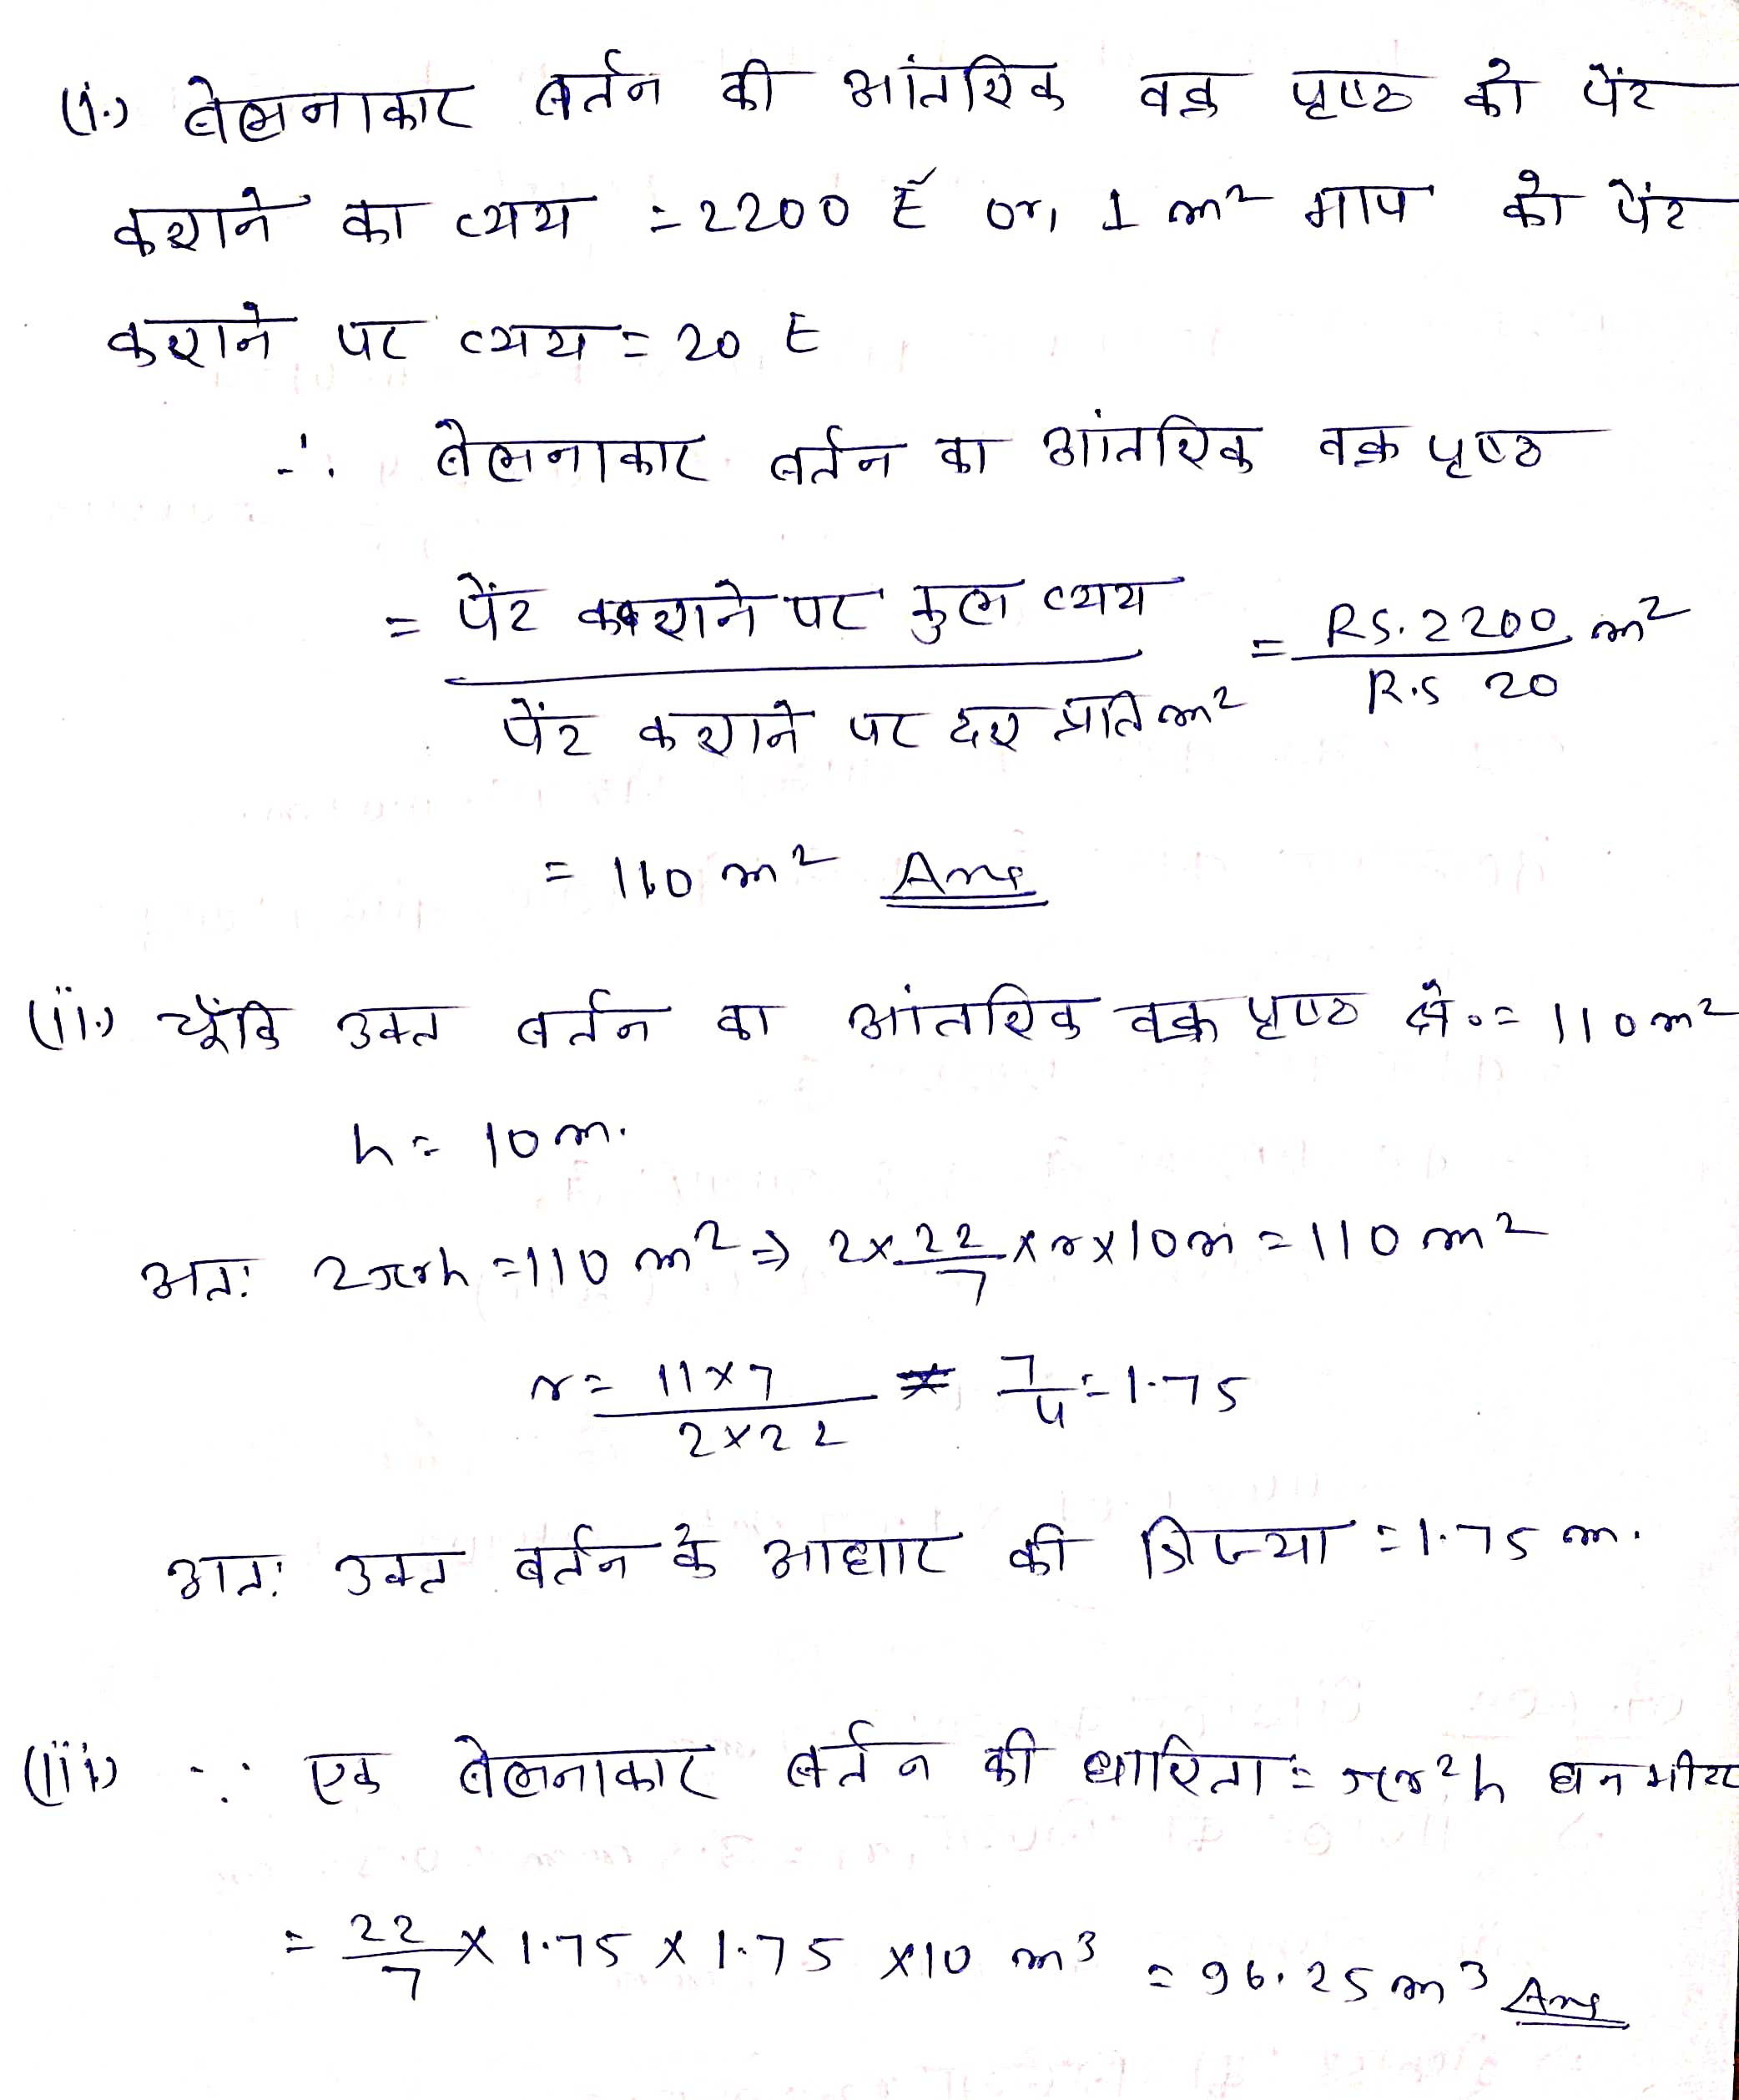 (i.) बेलनाकार बर्तन की आंतरिक वक्र पृष्ठ को पेंट
कराने का व्यय = 2200 ₹ or, 1 m² माप को पेंट
कराने पर व्यय = 20 ₹
∴ बेलनाकार बर्तन का आंतरिक वक्र पृष्ठ
= पेंट कराने पर कुल व्यय / पेंट कराने पर दर प्रति m² = RS. 2200 / R.S 20 m²
= 110 m² Ans
(ii.) चूँकि उक्त बर्तन का आंतरिक वक्र पृष्ठ क्षे० = 110 m²
h = 10 m.
अतः 2πrh = 110 m² ⇒ 2 × 22/7 × r × 10 m = 110 m²
r = 11 × 7 / 2 × 22 = 7/4 = 1.75
अतः उक्त बर्तन के आधार की त्रिज्या = 1.75 m.
(iii) ∵ एक बेलनाकार बर्तन की धारिता = πr²h घन मीटर
= 22/7 × 1.75 × 1.75 × 10 m³ = 96.25 m³ Ans